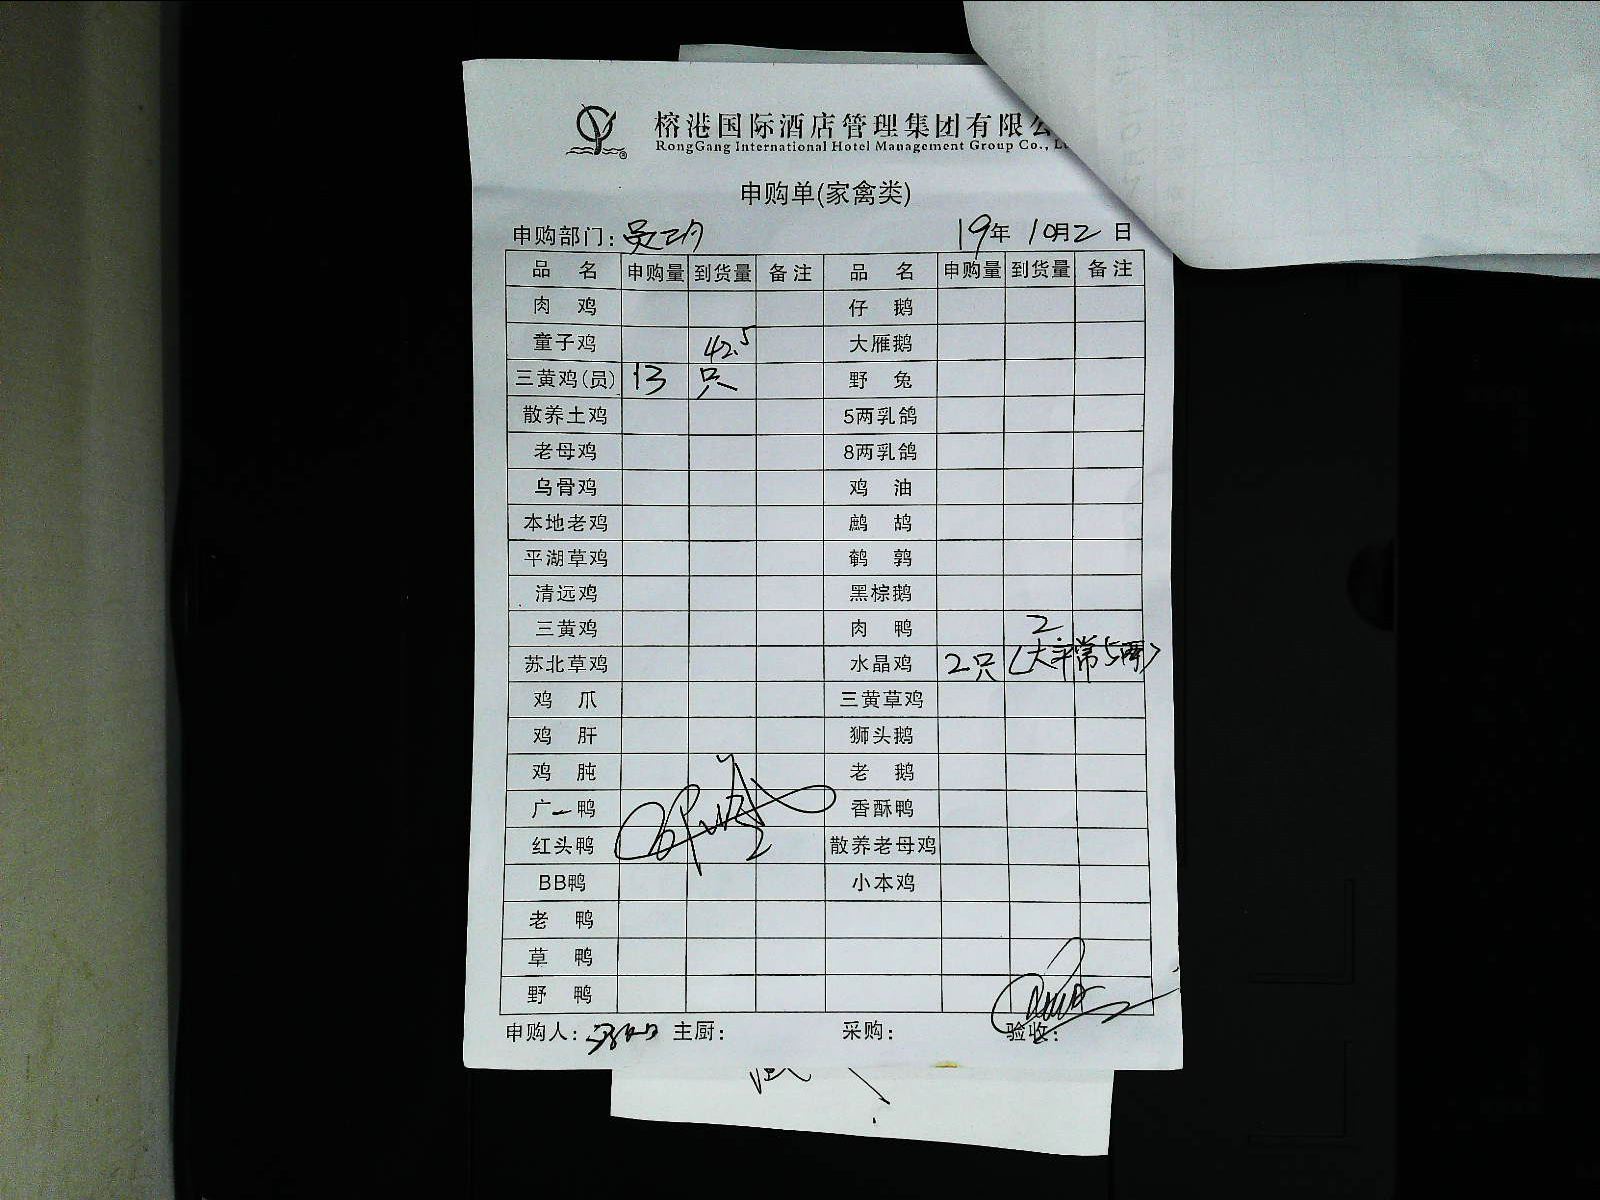 榕港国际酒店管理集团有限公
RongGang International Hotel Management Group Co., L
申购单(家禽类)
申购部门: 员工 19年 10月2日
品名 申购量 到货量 备注 品名 申购量 到货量 备注
肉鸡 仔鹅
童子鸡 42.5 大雁鹅
三黄鸡(员) 13 只 野兔
散养土鸡 5两乳鸽
老母鸡 8两乳鸽
乌骨鸡 鸡油
本地老鸡 鹧鸪
平湖草鸡 鹌鹑
清远鸡 黑棕鹅
三黄鸡 肉鸭 2
苏北草鸡 水晶鸡 2只
鸡爪 三黄草鸡
鸡肝 狮头鹅
鸡肫 老鹅
广一鸭 香酥鸭
红头鸭 散养老母鸡
BB鸭 小本鸡
老鸭
草鸭
野鸭
申购人: 主厨: 采购: 验收: